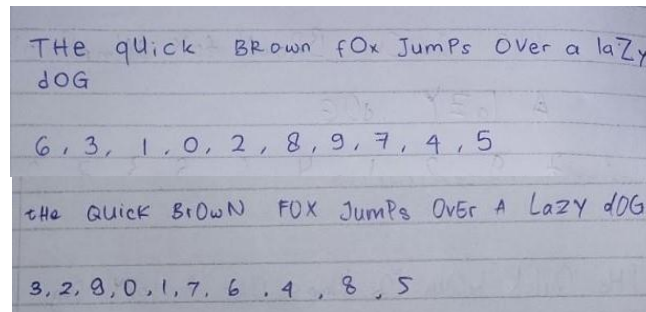 THe quick BROwn fOx JumPs Over a laZy
dOG
6, 3, 1, 0, 2, 8, 9, 7, 4, 5
tHe QuicK BrOwN FOX JumPs OvEr A LazY dOG
3, 2, 9, 0, 1, 7, 6, 4, 8, 5